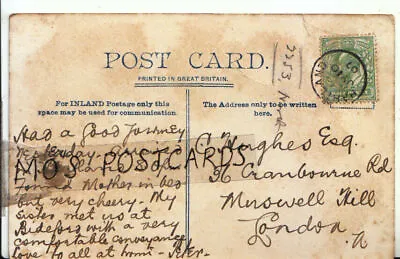 POST CARD.
PRINTED IN GREAT BRITAIN.
For INLAND Postage only this
space may be used for communication.
The Address only to be written
here.
Had a Good Journey
yesterday.
Mother in bed
but very cheery - My
sister met us at
Bideford with a very
comfortable conveyance
Love to all at home -
Hughes Esq.
Cranbourne Rd
Muswell Hill
London
N
MO'S POSTCARDS.